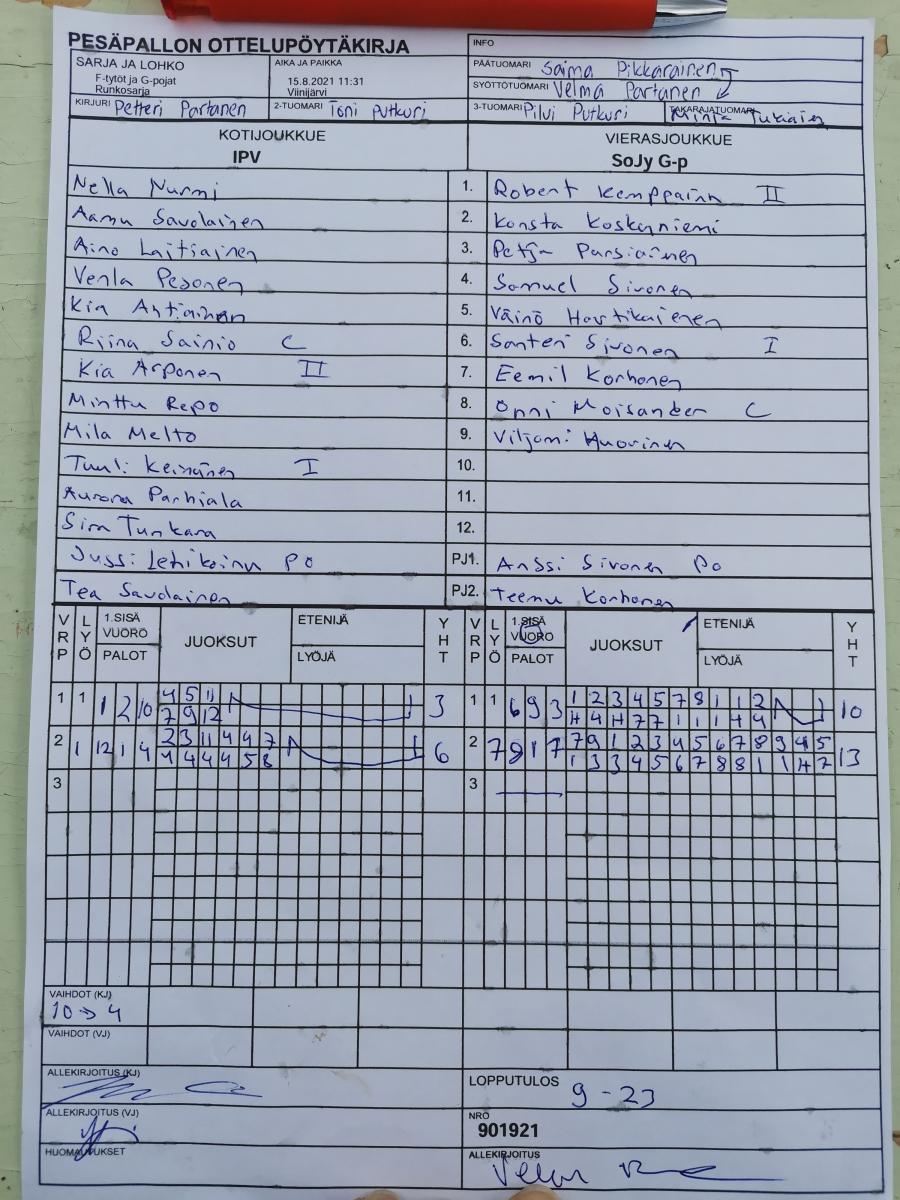 PESÄPALLON OTTELUPÖYTÄKIRJA
INFO
SARJA JA LOHKO
F-tytöt ja G-pojat
Runkosarja
AIKA JA PAIKKA
15.8.2021 11:31
Viinijärvi
PÄÄTUOMARI Saima Pikkarainen
SYÖTTÖTUOMARI Velma Partanen
KIRJURI Petteri Partanen
2-TUOMARI Toni Putkuri
3-TUOMARI Pilvi Putkuri
TAKARAJATUOMARI
KOTIJOUKKUE
IPV
VIERASJOUKKUE
SoJy G-p
Nella Nurmi 1. Robert Kemppainn II
Aamu Savolainen 2. Konsta Koskenniemi
Aino Laitiainen 3. Petja Parsiainen
Venla Pesonen 4. Samuel Sivonen
Kia Antiainen 5. Väinö Hartikainen
Riina Sainio C 6. Santeri Sivonen I
Kia Arponen II 7. Eemil Korhonen
Minttu Repo 8. Onni Moisander C
Mila Melto 9. Viljami Huovinen
Tuuli Keinänen I 10.
Aurora Parhiala 11.
Sira Tunkara 12.
Jussi Lehikoinn PO PJ1. Anssi Sivonen Po
Tea Savolainen PJ2. Teemu Korhonen
VRP LYÖ 1.SISÄ VUORO PALOT JUOKSUT ETENIJÄ LYÖJÄ YHT VRP LYÖ 1.SISÄ VUORO PALOT JUOKSUT ETENIJÄ LYÖJÄ YHT
4 5 11 1 2 3 4 5 7 8 1 1 2
1 1 1 2 10 3 1 1 6 9 3 10
7 9 12 4 4 4 7 7 1 1 1 4 4
2 3 11 4 4 7 7 9 1 2 3 4 5 6 7 8 9 4 5
2 1 12 1 4 6 2 7 9 1 7 13
4 4 4 4 5 8 1 3 3 4 5 6 7 8 8 1 1 4 7
3 3
VAIHDOT (KJ)
10 → 4
VAIHDOT (VJ)
ALLEKIRJOITUS (KJ)
LOPPUTULOS
9 - 23
ALLEKIRJOITUS (VJ)
NRO
901921
HUOMAUTUKSET
ALLEKIRJOITUS